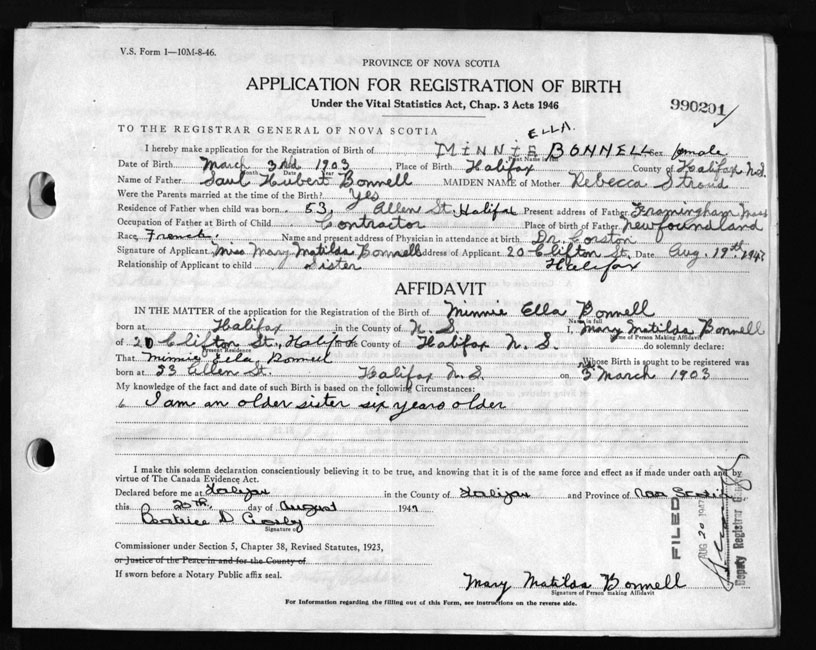 V.S. Form 1—10M-8-46.
PROVINCE OF NOVA SCOTIA
APPLICATION FOR REGISTRATION OF BIRTH
Under the Vital Statistics Act, Chap. 3 Acts 1946
990201
TO THE REGISTRAR GENERAL OF NOVA SCOTIA
ELLA.
I hereby make application for the Registration of Birth of MINNIE BONNELL Sex female
Print Name in full
Date of Birth March 3rd 1903, Place of Birth Halifax County of Halifax N.S.
Month Date Year
Name of Father Saul Hubert Bonnell MAIDEN NAME of Mother Rebecca Stroud
Were the Parents married at the time of Birth? Yes
Residence of Father when child was born 53, Allen St. Halifax Present address of Father Framingham Mass
Occupation of Father at Birth of Child Contractor Place of birth of Father Newfoundland
Race French Name and present address of Physician in attendance at birth Dr. Corston
Signature of Applicant Miss Mary Matilda Bonnell Address of Applicant 20 Clifton St, Date Aug. 19th 1947
Relationship of Applicant to child Sister Halifax
AFFIDAVIT
IN THE MATTER of the application for the Registration of the Birth of Minnie Ella Bonnell
Name in full
born at Halifax in the County of N.S. I, Mary Matilda Bonnell
Name of Person Making Affidavit
of 20 Clifton St., Halifax in the County of Halifax N.S. do solemnly declare:
Present Residence
That Minnie Ella Bonnell Whose Birth is sought to be registered was
born at 53 Allen St. Halifax N.S. on 3 March 1903
My knowledge of the fact and date of such Birth is based on the following Circumstances:
I am an older sister six years older
I make this solemn declaration conscientiously believing it to be true, and knowing that it is of the same force and effect as if made under oath and by
virtue of The Canada Evidence Act.
Declared before me at Halifax in the County of Halifax and Province of Nova Scotia
this 20th day of August 1947
Beatrice D Crosby
Signature of
Commissioner under Section 5, Chapter 38, Revised Statutes, 1923,
or Justice of the Peace in and for the County of
If sworn before a Notary Public affix seal.
FILED
AUG 20 1947
Deputy Registrar
Mary Matilda Bonnell
Signature of Person making Affidavit
For Information regarding the filling out of this Form, see instructions on the reverse side.